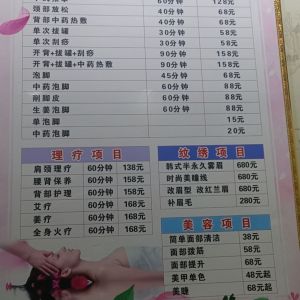 60分钟 128元
颈部放松 40分钟 68元
背部中药热敷 40分钟 68元
单次拔罐 30分钟 58元
单次刮痧 30分钟 58元
开背+拔罐+刮痧 90分钟 158元
开背+拔罐+中药热敷 90分钟 158元
泡脚 45分钟 68元
中药泡脚 60分钟 88元
削脚皮 60分钟 88元
生姜泡脚 60分钟 88元
单泡脚 15元
中药泡脚 20元
理疗项目
肩颈理疗 60分钟 138元
腰肾保养 60分钟 158元
背部护理 60分钟 158元
艾疗 60分钟 168元
姜疗 60分钟 168元
全身火疗 60分钟 168元
纹绣项目
韩式半永久雾眉 680元
时尚美瞳线 680元
改眉型 改红兰眉 680元
补眉毛 280元
美容项目
简单面部清洁 38元
面部拨筋 58元
面部提升 68元
美甲单色 48元起
美睫 68元起